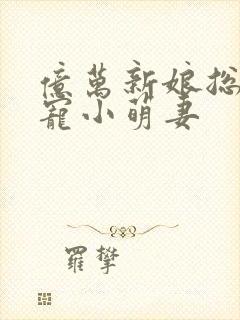 億萬新娘总
寵小萌妻
羅攀